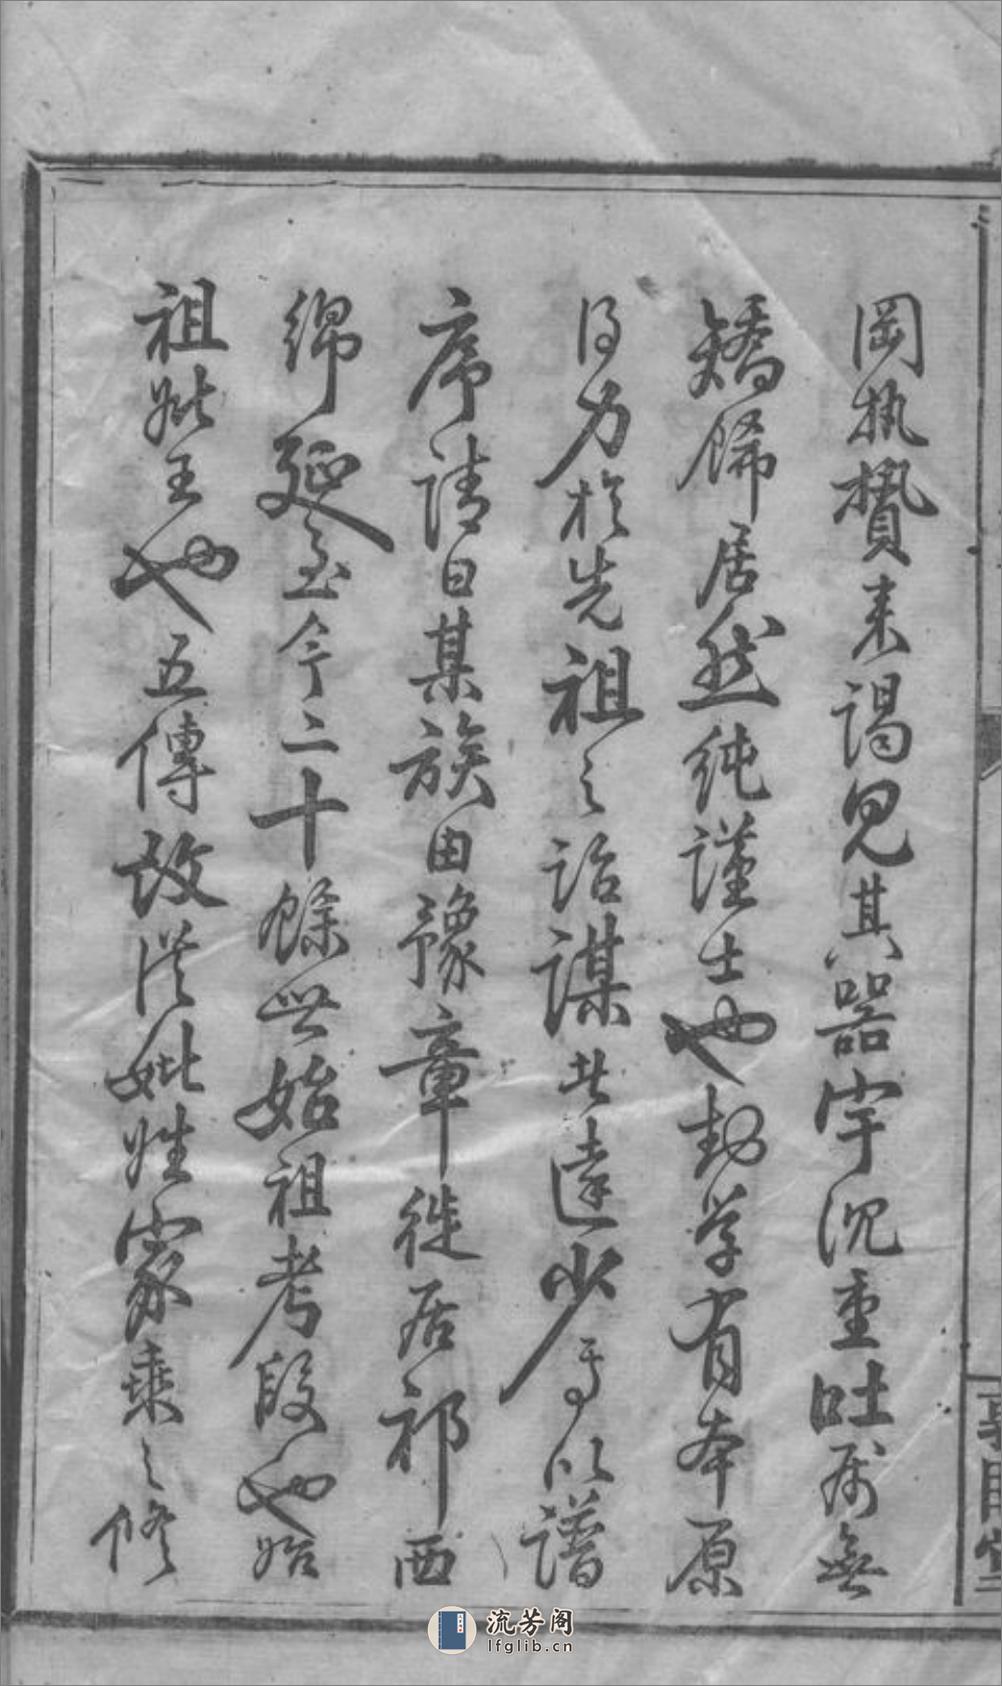 岡执贄来謁見其器宇沉重吐属無
矯飾居然純謹士也劬学有本原
得力於先祖之詒謀者達少焉以譜
序請曰某族由豫章徙居祁西
綿延至今二十餘世始祖考段也始
祖妣王也五傳改從妣姓家乘之修
敦睦堂
流芳阁
lfglib.cn